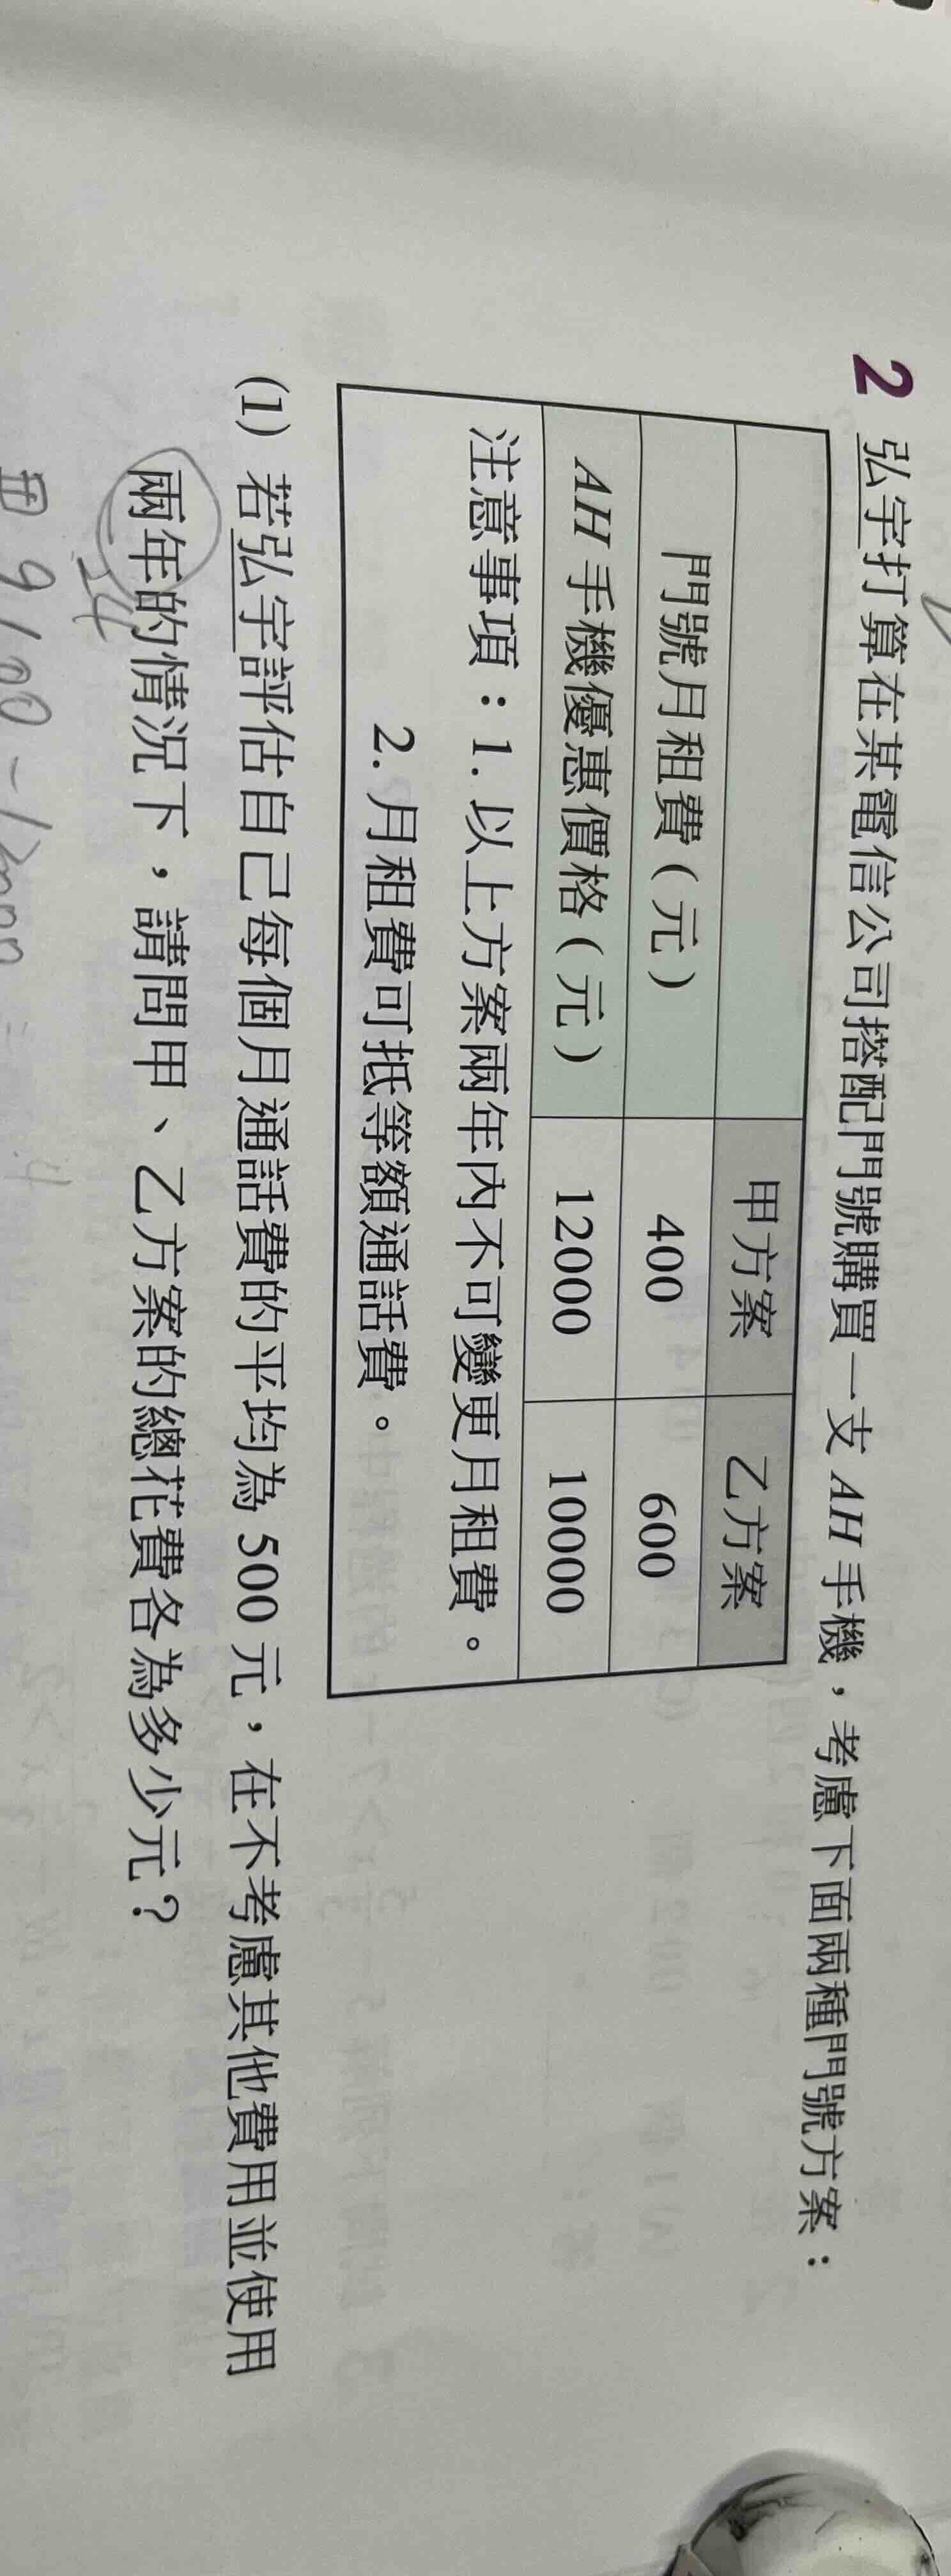 2 弘宇打算在某電信公司搭配門號購買一支 AH 手機，考慮下面兩種門號方案：
甲方案 乙方案
門號月租費（元） 400 600
AH 手機優惠價格（元） 12000 10000
注意事項：1. 以上方案兩年內不可變更月租費。
2. 月租費可抵等額通話費。
(1) 若弘宇評估自己每個月通話費的平均為 500 元，在不考慮其他費用並使用
兩年的情況下，請問甲、乙方案的總花費各為多少元？
24